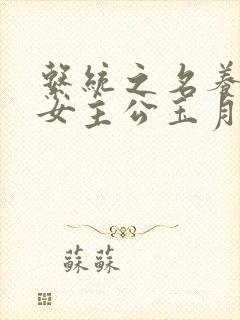 繫統之名養
女主公玉月
蘇蘇